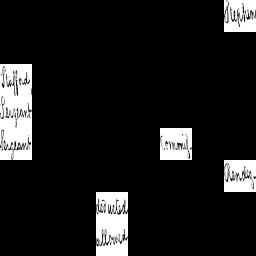 Stephen
Stafford,
Sergeant
Sergeant
Commis.
Rendez-
deducted
allowed